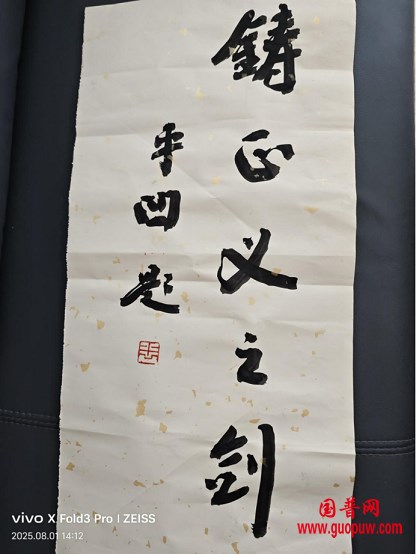 铸正义之剑
平凹题
vivo X Fold3 Pro | ZEISS
2025.08.01 14:12
国普网
www.guopuw.com